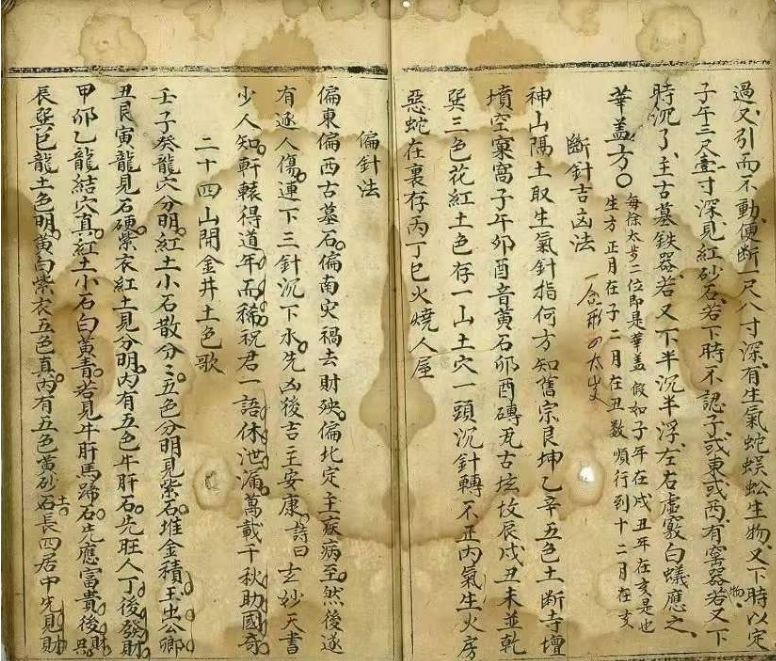 過又引而不動便斷一尺八寸深有生氣蛇蜈蚣生物又下時以定
子午三尺壹寸深見紅砂石若下時不認子或東或西有窰器若又下
時沉了主古墓鉄器若又下半沉半浮左右虛竅白蟻應之
華盖方〇每徐太歩二位即是華盖假如子年在戌丑年在亥是也
生方正月在子二月在丑数順行到十二月在亥
斷針吉凶法
神山陽土取生氣針指何方知舊宗艮坤乙辛五色土斷寺壇
墳空窠窩子午夘酉音黃石夘酉磚瓦古坟辰戌丑未並乾
巽三色花紅土色存一山土穴一頭沉針轉不正內氣生火房
惡蛇在裏存丙丁巳火燒人屋
偏針法
偏東偏西古墓石偏南灾禍去財殃偏北定主瘶病至然後遂
有逐人傷連下三針沉下水先凶後吉主安康詩曰玄妙天書
少人知軒轅得道年而稀祝君一語休泄漏萬載千秋助國奇
二十四山開金井土色歌
壬子癸龍穴分明紅土小石散分〻五色分明見紫石堆金積玉出公卿
丑艮寅龍見石硬紫衣紅土見分明內有五色牛肝石先旺人丁後發財
甲夘乙龍結穴真紅土小石白黃青若見牛肝馬蹄石先應富貴後
辰巽巳龍土色明黃白紫衣五色真內有五色黃砂石長四居中先見財